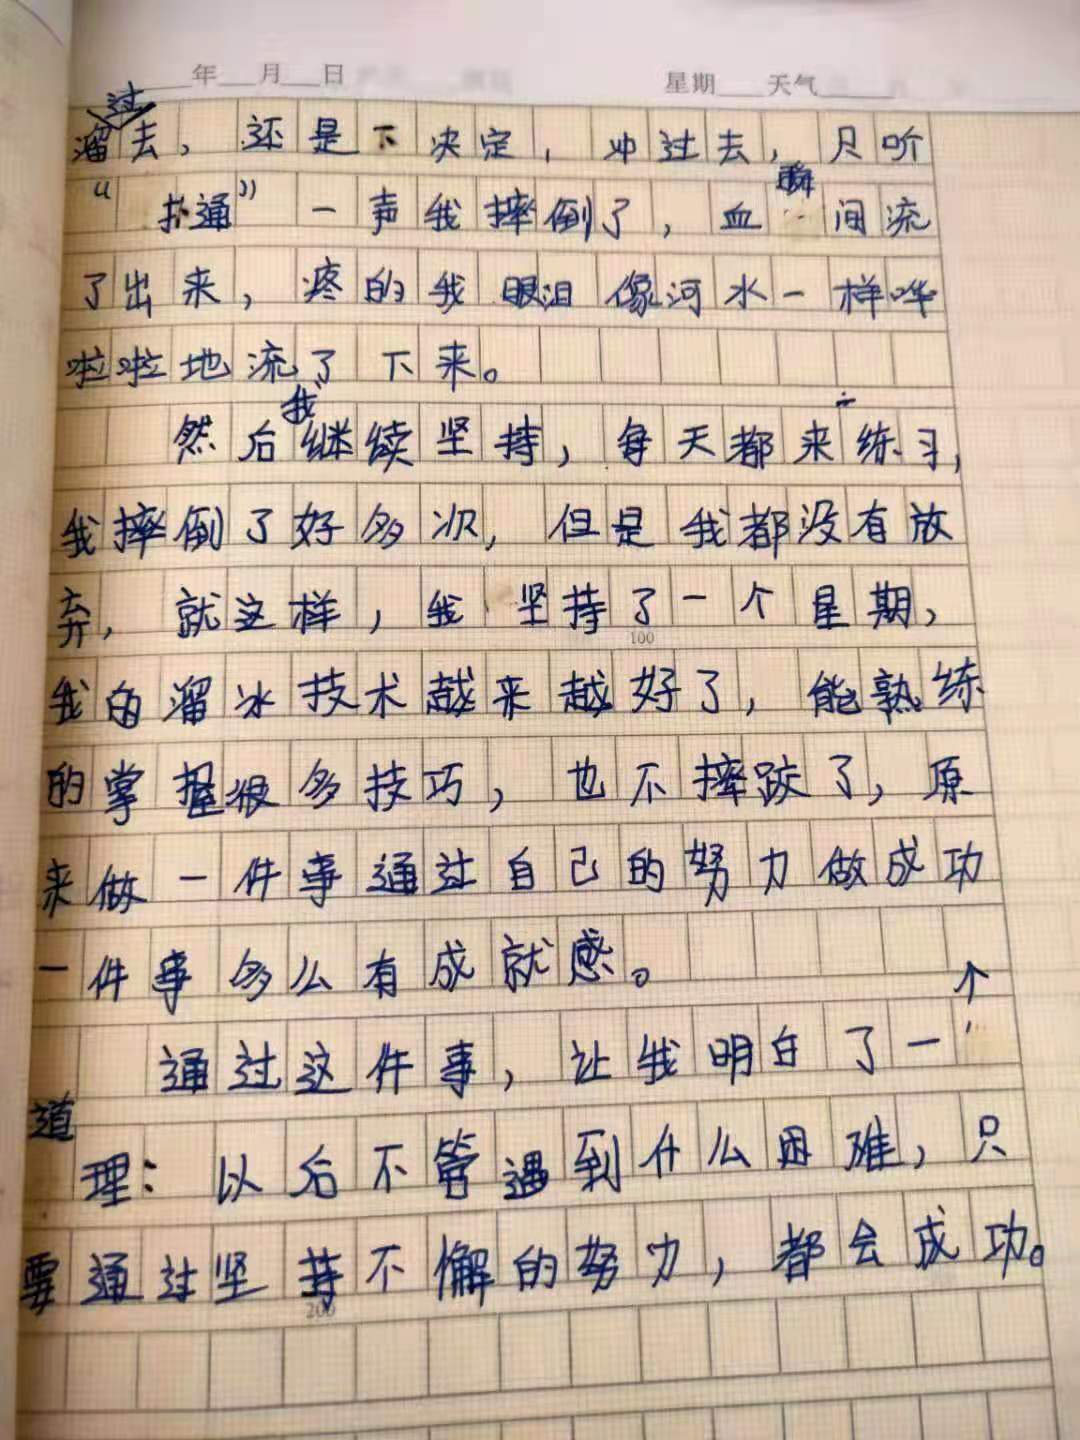 年 月 日 星期 天气
溜过去，还是下决定，冲过去，只听
“扑通”一声我摔倒了，血瞬间流
了出来，疼的我眼泪像河水一样哗
啦啦地流了下来。
然后我继续坚持，每天都来练习，
我摔倒了好多次，但是我都没有放
弃，就这样，我坚持了一个星期，
100
我的溜冰技术越来越好了，能熟练
的掌握很多技巧，也不摔跤了，原
来做一件事通过自己的努力做成功
一件事多么有成就感。
通过这件事，让我明白了一
道理：以后不管遇到什么困难，只
要通过坚持不懈的努力，都会成功。
200